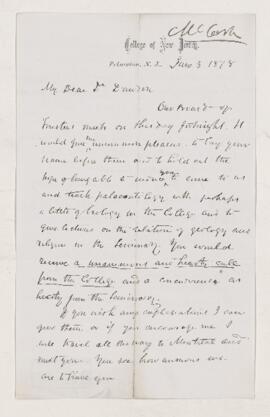 McCosh
College of New Jersey,
Princeton, N. J. June 3 1878
My Dear Dr Dawson
Our Board of
Trustees meets on this day fortnight. It
would give me immense pleasure to lay your
name before them and to hold out the
hope of being able to induce you to come to us
and teach palaeontology with perhaps
a little of Geology in the College and to
give lectures on the relation of geology and
religion in the Seminary. You would
receive a unanimous and hearty call
from the College and a concurrence as
hearty from the Seminary.
If you wish any explanations I can
give them or if you encourage me I
will travel all the way to Montreal and
meet you. You see how anxious we
are to have you